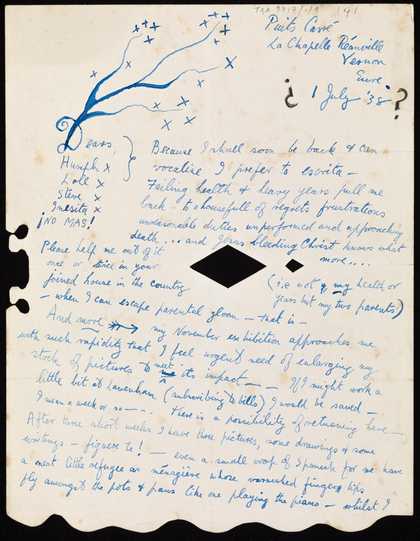 TGA 9712/2/ 141
Puits Carré
La Chapelle Réanville
Vernon
Eure
¿ 1 July '38 ?
Dears,
Humph x
Doll x
Steve x
Inesita x
¡NO MAS!
Because I shall soon be back & can
vocalise I prefer to escrita —
Failing health & heavy years pull me
back — to a housefull of regrets frustrations
undesirable duties unperformed and approaching
death... and Jesus bleeding Christ knows what
more....
(i.e. not of my health or
years but my two parents)
Please help me out of it
one or twice in your
joined house in the country
— when I can escape parental gloom — that is —
And more my November exhibition approaches me
with such rapidity that I feel urgent need of enlarging my
stock of pictures to its impact — If I might work a
little bit at Lavenham (subscribing to bills) I would be saved —
I mean a week or so — .. there is a possibility of returning here —
After three short weeks I have three pictures, some drawings & some
writings — figure to! — even a small woof of Spanish for me have
a most little refugee as ménagière whose varnished finger tips
fly amongst the pots & pans like one playing the piano — whilst I